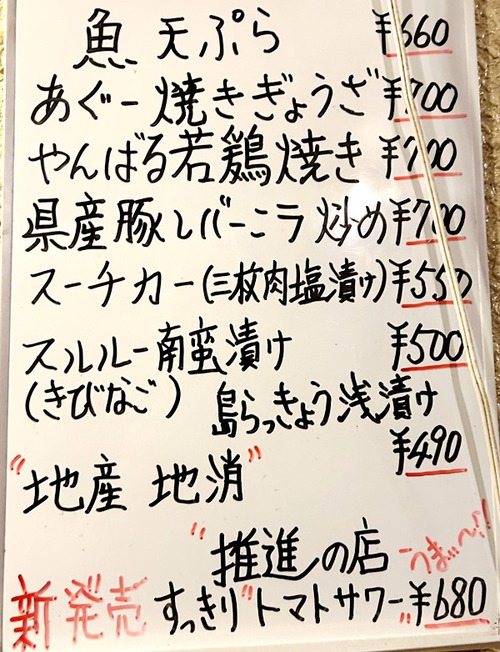 魚 天ぷら ¥660
あぐー焼きぎょうざ ¥700
やんばる若鶏焼き ¥700
県産豚レバーニラ炒め ¥700
スーチカー(三枚肉塩漬け) ¥550
スルルー南蛮漬け ¥500
(きびなご)
島らっきょう浅漬け
¥490
"地産 地消"
"推進の店
うま…〜い!
新発売 すっきり"トマトサワー" ¥680